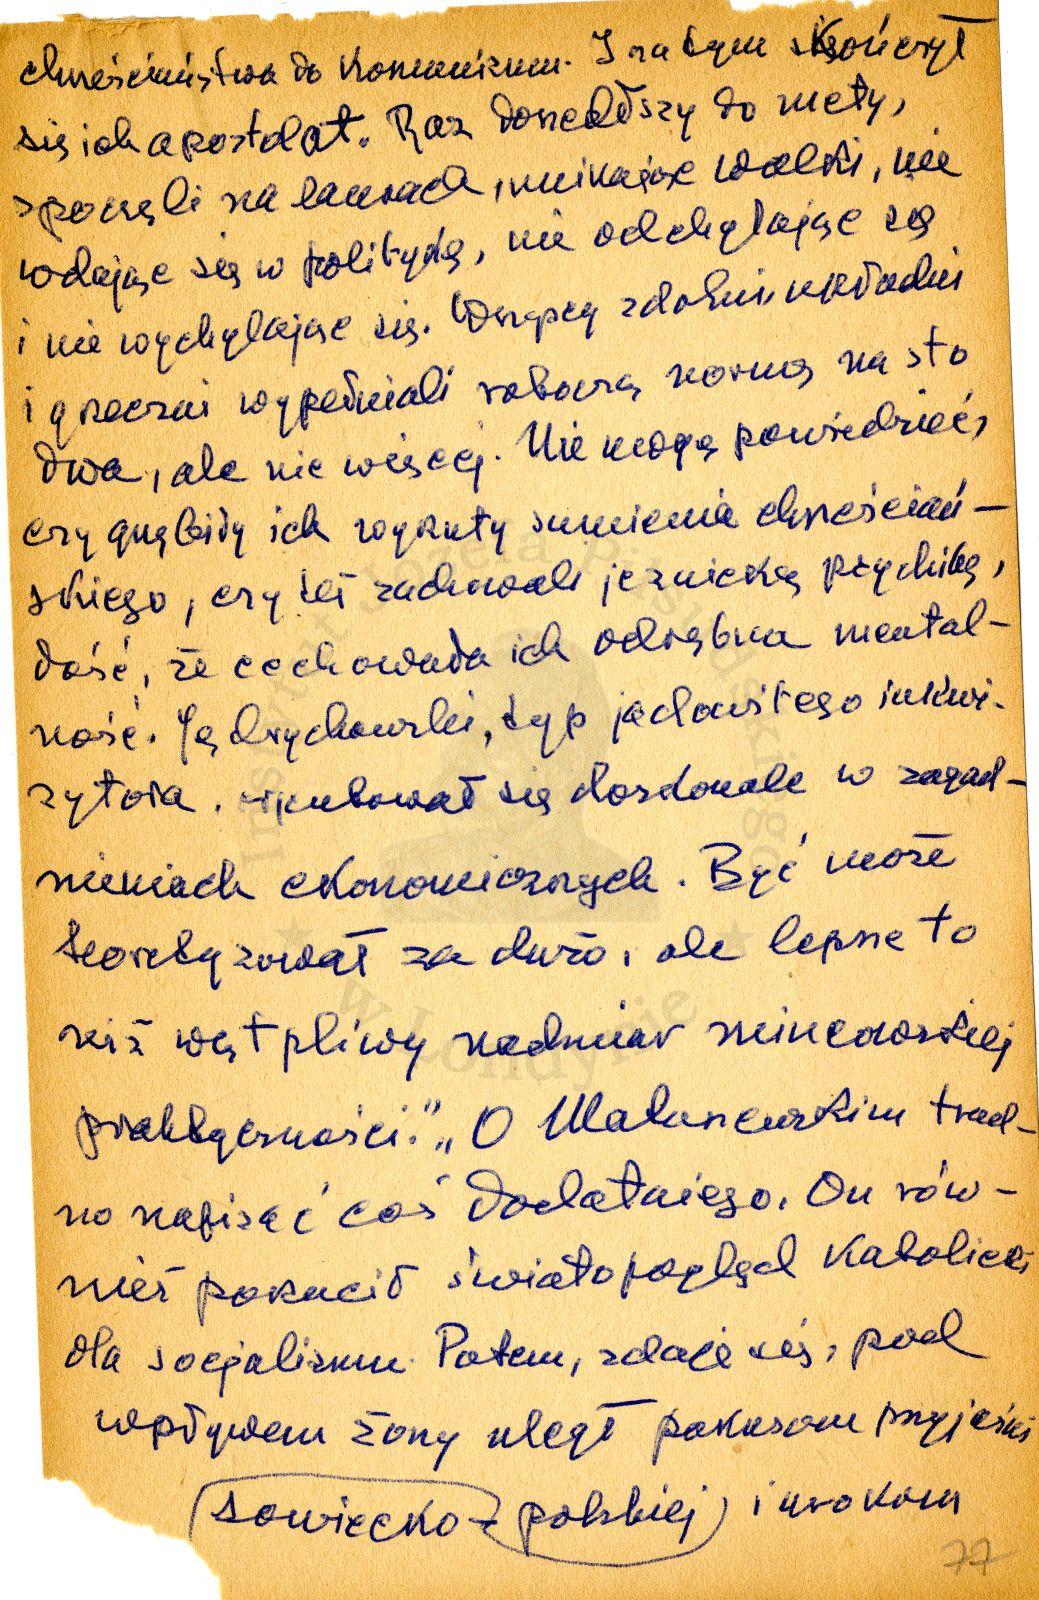 chrześcijaństwa do komunizmu. I na tym skończył
się ich apostolat. Raz doszedłszy do mety,
spoczęli na laurach, unikając walki, nie
wdając się w politykę, nie odchylając się
i nie wychylając się. Wszyscy zdolni, układni
i grzeczni wypełniali roboczą normę na sto
dwa, ale nie więcej. Nie mogę powiedzieć,
czy gnębiły ich wyrzuty sumienia chrześcijań-
skiego, czy też zachowali jezuicką psychikę,
dość, że cechowała ich odrębna mental-
ność. Jędrychowski, typ jadowitego inkwi-
zytora, orientował się doskonale w zagad-
nieniach ekonomicznych. Być może
teoretyzował za dużo, ale lepsze to
niż wątpliwy nadmiar mincowskiej
praktyczności." „O Matuszewskim trud-
no napisać coś dodatniego. On rów-
nież porzucił światopogląd katolicki
dla socjalizmu. Potem, zdaje się, pod
wpływem żony uległ pokusom przyjaźni
sowiecko-polskiej i urokom
77
Instytut Józefa Piłsudskiego
w Londynie